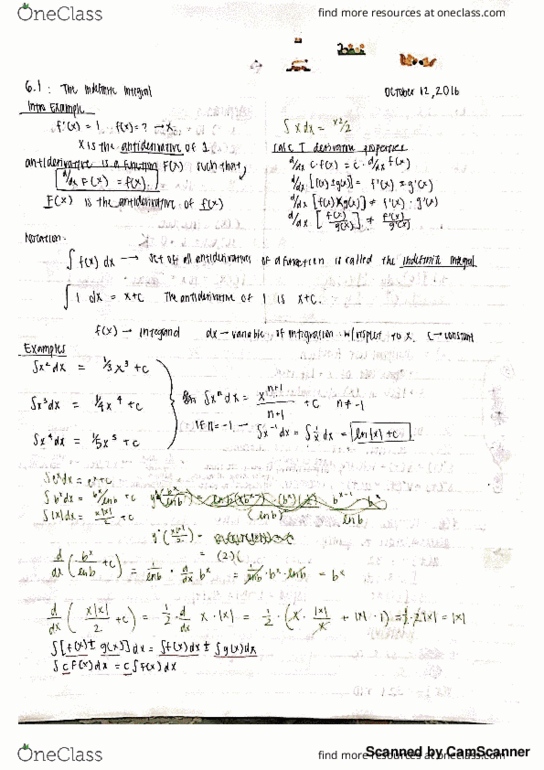 OneClass
find more resources at oneclass.com
October 12, 2016
6.1: The Indefinite Integral
Intro Example
f'(x) = 1 f(x) = ? → x
x is the antiderivative of 1
antiderivative is a function F(x) such that
d/dx F(x) = f(x).
F(x) is the antiderivative of f(x)
∫ x dx = x²/2
Calc I derivative properties
d/dx c·f(x) = c · d/dx f(x)
d/dx [f(x) ± g(x)] = f'(x) ± g'(x)
d/dx [f(x)·g(x)] ≠ f'(x) · g'(x)
d/dx [f(x)/g(x)] ≠ f'(x)/g'(x)
Notation:
∫ f(x) dx → set of all antiderivatives of a function is called the indefinite integral
∫ 1 dx = x+c The antiderivative of 1 is x+c.
f(x) → integrand dx → variable of integration w/ respect to x. c → constant
Examples
∫x² dx = 1/3 x³ + c
∫x³ dx = 1/4 x⁴ + c
∫x⁴ dx = 1/5 x⁵ + c
∫xⁿ dx = xⁿ⁺¹/n+1 + c n ≠ -1
If n = -1 → ∫x⁻¹ dx = ∫1/x dx = ln|x| + c
∫eˣ dx = eˣ + c
∫bˣ dx = bˣ/ln b + c
∫|x| dx = x|x|/2 + c
d/dx (bˣ/ln b + c) = 1/ln b · d/dx bˣ = 1/ln b · bˣ · ln b = bˣ
d/dx (x|x|/2 + c) = 1/2 · d/dx x·|x| = 1/2 · (x · |x|/x + |x| · 1) = 1/2 · 2|x| = |x|
∫[f(x) ± g(x)] dx = ∫f(x) dx ± ∫g(x) dx
∫c f(x) dx = c∫f(x) dx
OneClass
find more resources at oneclass.com
Scanned by CamScanner